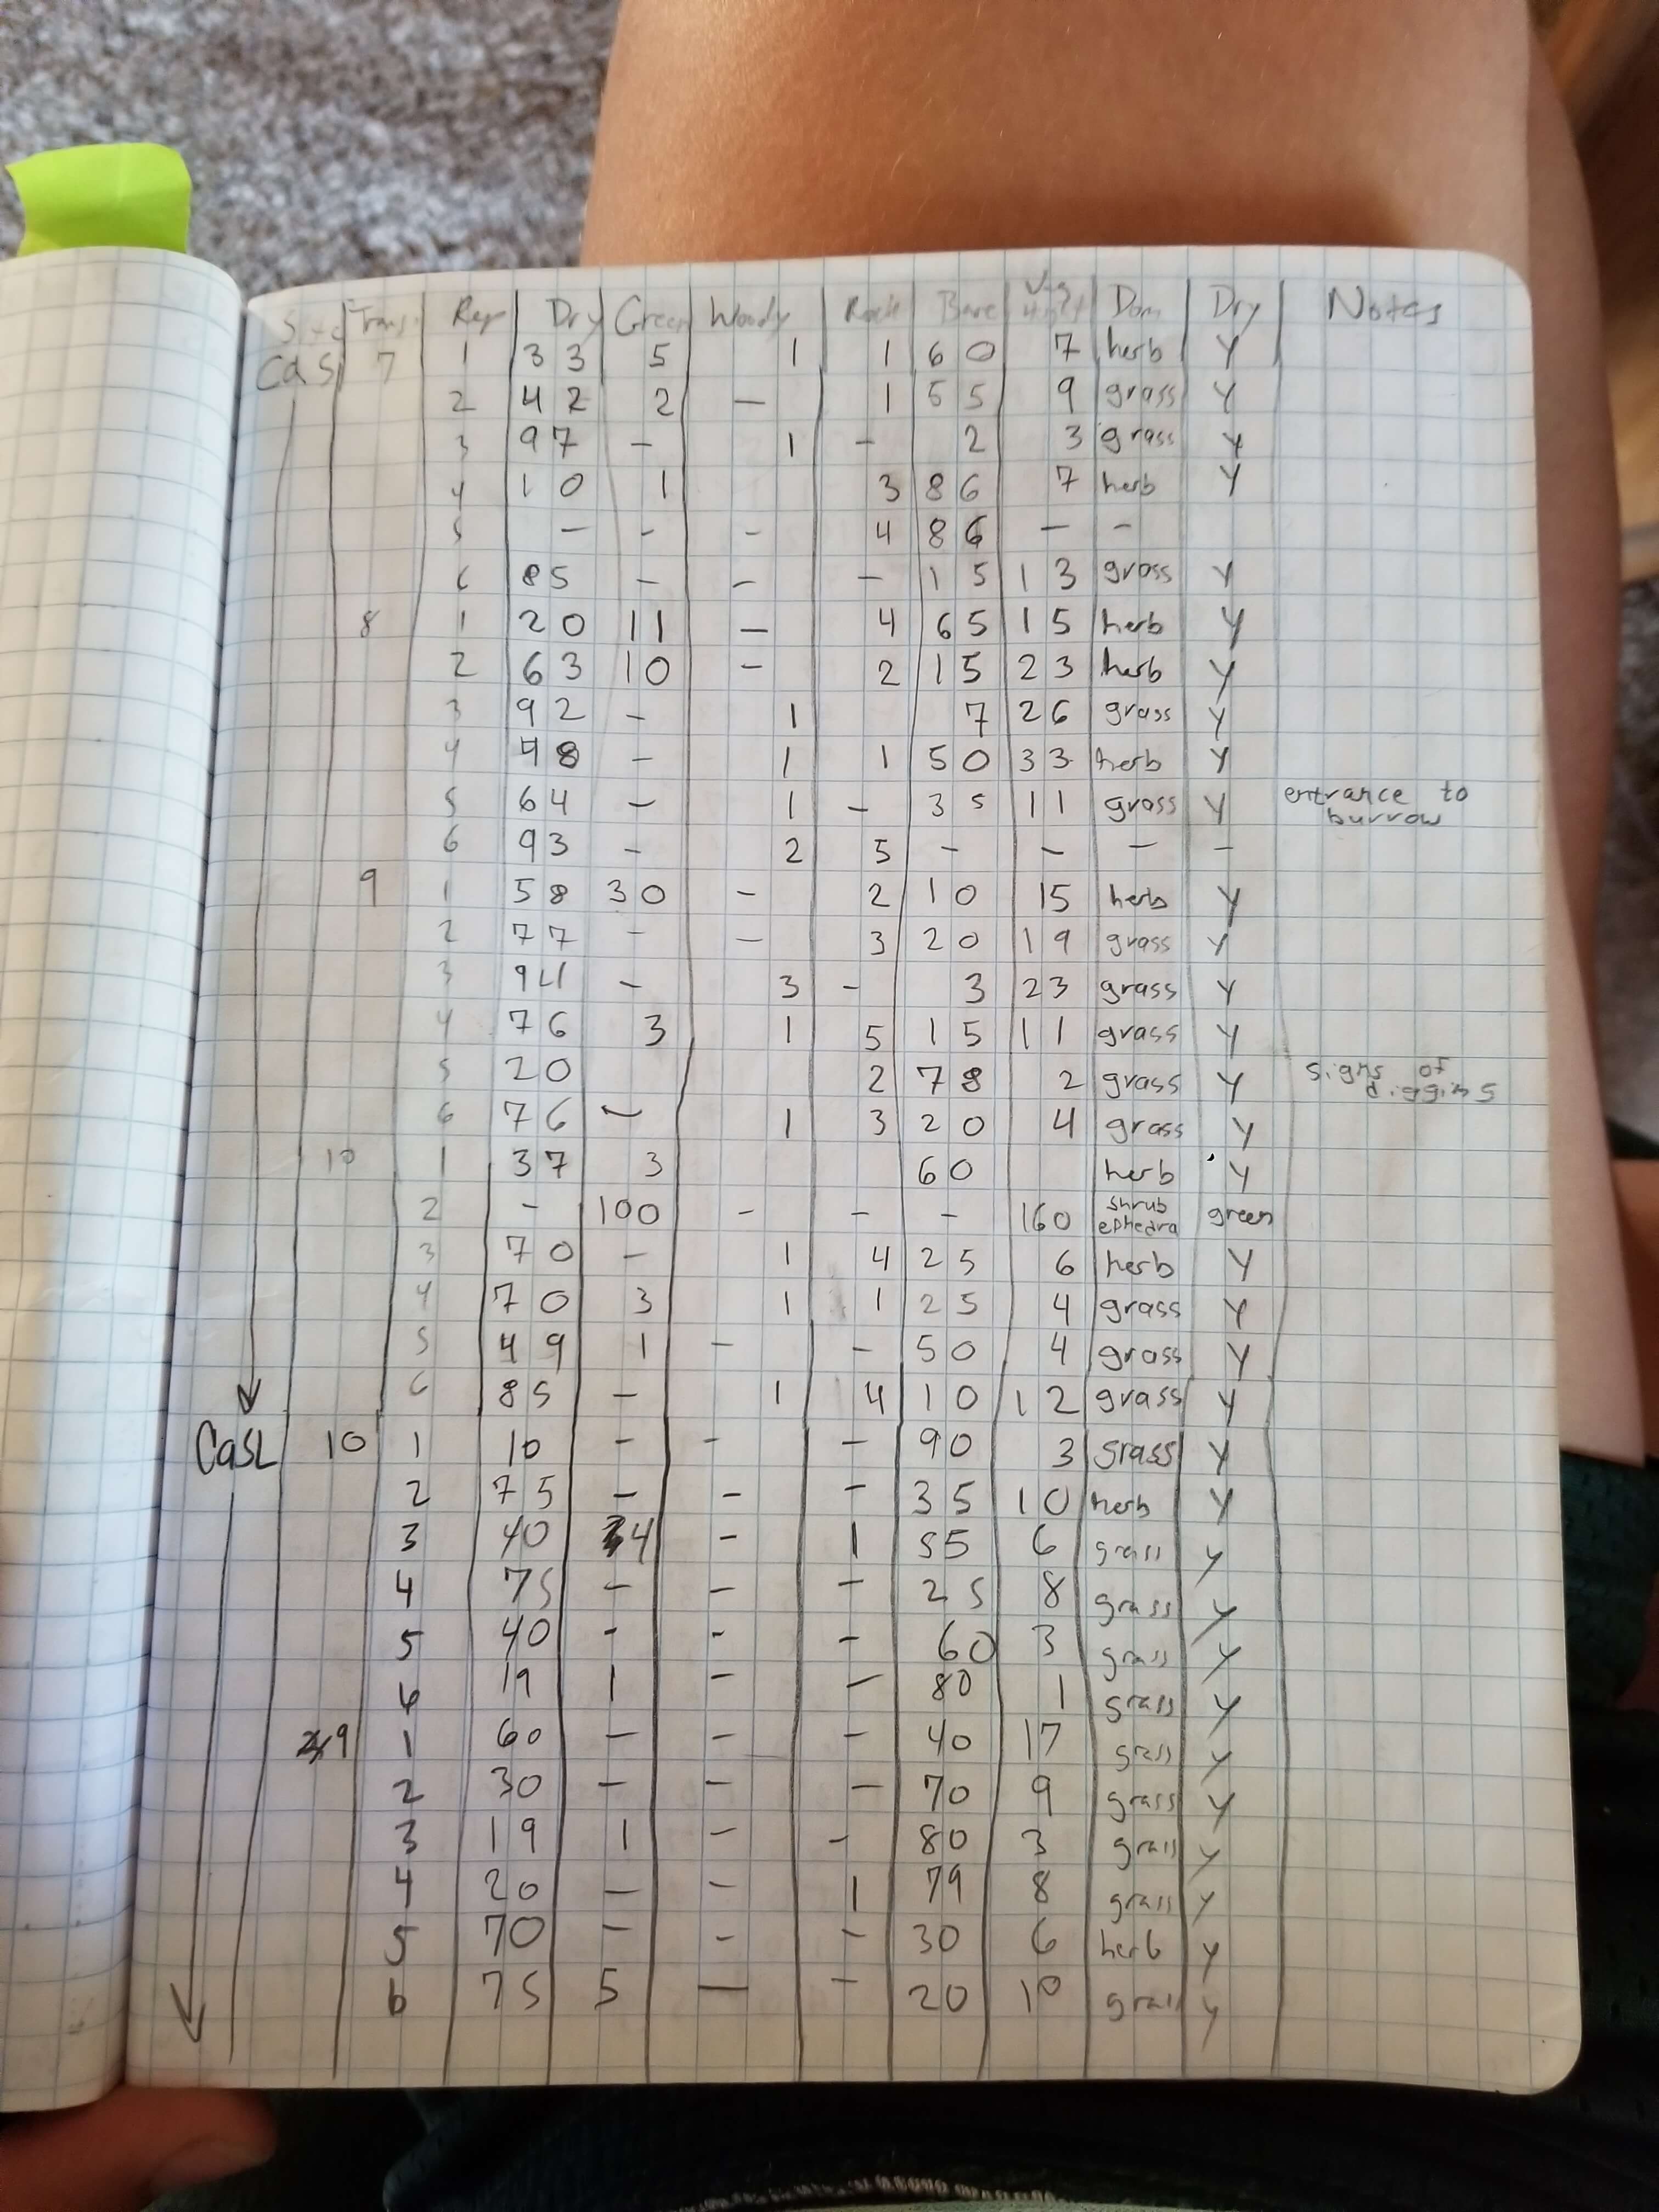 Site Trans. Rep Dry Green Woody Rock Bare Veg Hght Dom Dry Notes
CaS 7 1 33 5 1 1 60 7 herb Y
2 42 2 — 1 55 9 grass Y
3 97 — 1 - 2 3 grass Y
4 10 1 3 86 7 herb Y
5 — - - 4 86 — -
6 85 — — — 15 13 grass Y
8 1 20 11 — 4 65 15 herb Y
2 63 10 - 2 15 23 herb Y
3 92 - 1 7 26 grass Y
4 48 - 1 1 50 33 herb Y
5 64 - 1 - 35 11 grass Y entrance to
burrow
6 93 - 2 5 - - — -
9 1 58 30 - 2 10 15 herb Y
2 77 - — 3 20 19 grass Y
3 94 - 3 - 3 23 grass Y
4 76 3 1 5 15 11 grass Y
5 20 2 78 2 grass Y signs of
digging
6 76 - 1 3 20 4 grass Y
10 1 37 3 60 herb Y
2 - 100 - - - 160 shrub ephedra green
3 70 - 1 4 25 6 herb Y
4 70 3 1 1 25 4 grass Y
5 49 1 - - 50 4 grass Y
6 85 - 1 4 10 12 grass Y
CaSL 10 1 10 - - - 90 3 grass Y
2 75 - - - 35 10 herb Y
3 40 4 - 1 55 6 grass Y
4 75 - - - 25 8 grass Y
5 40 - - - 60 3 grass Y
6 19 1 - - 80 1 grass Y
9 1 60 - - - 40 17 grass Y
2 30 - - - 70 9 grass Y
3 19 1 - - 80 3 grass Y
4 20 — - 1 79 8 grass Y
5 70 - - - 30 6 herb Y
6 75 5 — - 20 10 grass Y